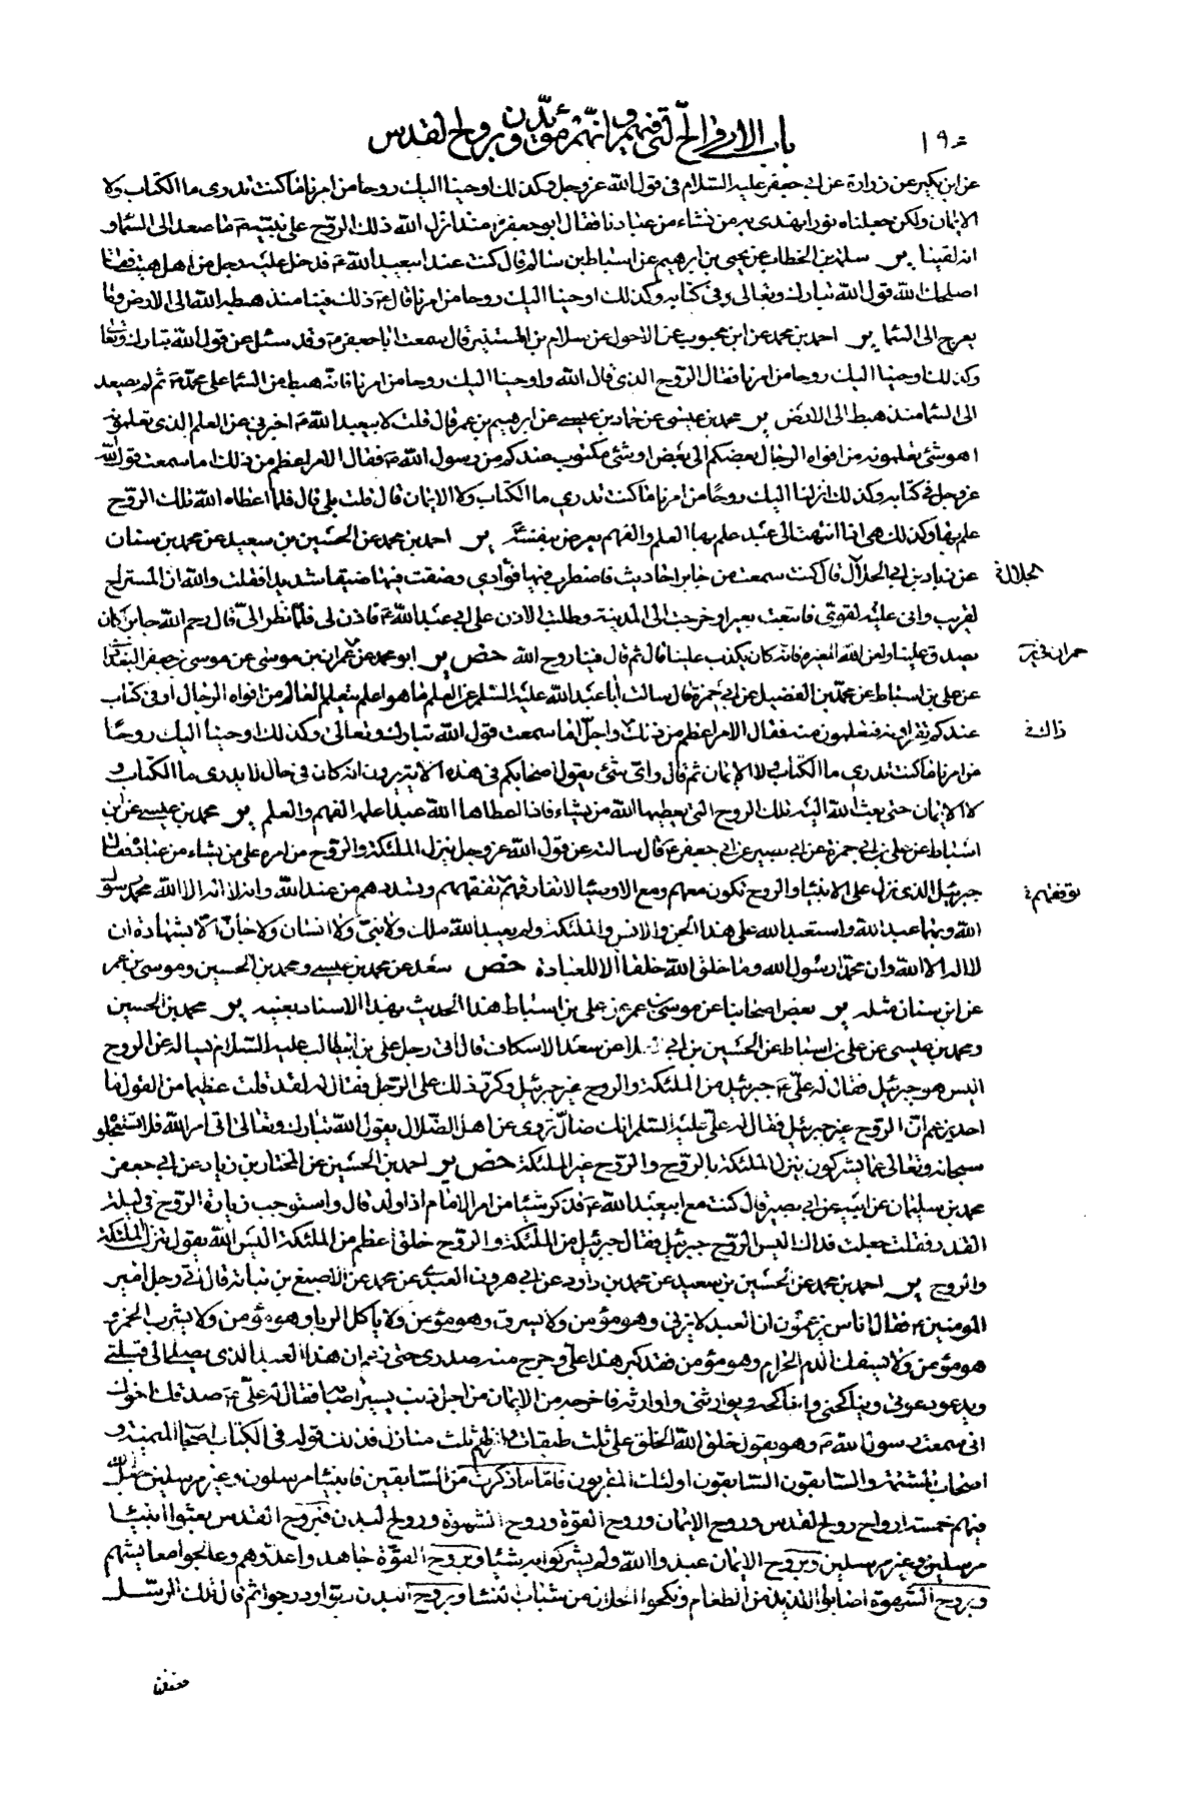 باب الارواح التى فيهم وانهم مؤيدون بروح القدس
١٩٠
عن ابن بكير عن زرارة عن ابى جعفر عليه السلام فى قول الله عز وجل وكذلك اوحينا اليك روحا من امرنا ما كنت تدرى ما الكتاب ولا
الايمان ولكن جعلناه نورا نهدى به من نشاء من عبادنا فقال ابو جعفر ع منذ انزل الله ذلك الروح على نبيه ص ما صعد الى السماء و
انه لفينا ير سلمة بن الخطاب عن يحيى بن ابرهيم عن اسباط بن سالم قال كنت عند ابيعبد الله ع فدخل عليه رجل من اهل هيت فقال
اصلحك الله قول الله تبارك وتعالى فى كتابه وكذلك اوحينا اليك روحا من امرنا قال ع ذلك فينا منذ هبطه الله الى الارض وما
يعرج الى السماء ير احمد بن محمد عن ابن محبوب عن الاحول عن سلام بن المستنير قال سمعت ابا جعفر ع وقد سئل عن قول الله تبارك وتعالى
وكذلك اوحينا اليك روحا من امرنا فقال الروح الذى قال الله واوحينا اليك روحا من امرنا فانه هبط من السماء على محمد ص ثم لم يصعد
الى السماء منذ هبط الى الارض ير محمد بن عيسى عن حماد بن عيسى عن ابرهيم بن عمر قال قلت لابيعبد الله ع اخبرنى عن العلم الذى تعلمونه
اهو شئ تعلمونه من افواه الرجال بعضكم الى بعض او شئ مكتوب عندكم من رسول الله ص فقال الامر اعظم من ذلك اما سمعت قول الله
عز وجل فى كتابه وكذلك انزلنا اليك روحا من امرنا ما كنت تدرى ما الكتاب ولا الايمان قال قلت بلى قال فلما اعطاه الله تلك الروح
علم بها وكذلك هى اذا انتهت الى عبد علم بها العلم والفهم يعرض بنفسه ع ير احمد بن محمد عن الحسين بن سعيد عن محمد بن سنان
عن زياد بن ابى الحلال قال كنت سمعت من جابر احاديث فاضطرب فيها فؤادى وضقت فيها ضيقا شديدا فقلت والله ان المستراح
الجلالة
لقريب وانى عليه لقوى فابتعت بعيرا وخرجت الى المدينة وطلبت الاذن على ابى عبد الله ع فاذن لى فلما نظر الى قال رحم الله جابرا كان
يصدق علينا ولعن الله المغيرة فانه كان يكذب علينا قال ثم قال فينا روح الله خص ير ابو محمد عن عمران بن موسى عن موسى بن جعفر البغدادى
عن على بن اسباط عن محمد بن الفضيل عن ابى حمزة قال سالت ابا عبد الله عليه السلم عن العلم ما هو اعلم يتعلم العالم من افواه الرجال او فى كتاب
عندكم تقراونه فتعلمون منه فقال الامر اعظم من ذلك واجل اما سمعت قول الله تبارك وتعالى وكذلك اوحينا اليك روحا
من امرنا ما كنت تدرى ما الكتاب ولا الايمان ثم قال واى شئ يقول اصحابكم فى هذه الاية يرون انه كان فى حال لا يدرى ما الكتاب و
لا الايمان حتى بعث الله اليه تلك الروح التى يعطيها الله من يشاء فاذا اعطاها الله عبدا علمه الفهم والعلم ير محمد بن عيسى عن ابن
اسباط عن على بن ابى حمزة عن ابى بصير عن ابى جعفر ع قال سالته عن قول الله عز وجل ينزل الملئكة والروح من امره على من يشاء من عباده فقال
جبرئيل الذى نزل على الانبياء والروح تكون معهم ومع الاوصياء لا تفارقهم تفقههم وتسددهم من عند الله وانه لا اله الا الله محمد رسول
الله وبهما عبد الله واستعبد الله على هذا الجن والانس والملئكة ولم يعبد الله ملك ولا نبى ولا انسان ولا جان الا بشهادة ان
لا اله الا الله وان محمدا رسول الله وما خلق الله خلقا الا للعبادة خص سعد عن محمد بن عيسى ومحمد بن الحسين وموسى بن عمر
عن ابن سنان مثله ير بعض اصحابنا عن موسى بن عمر عن على بن اسباط هذا الحديث بهذا الاسناد بعينه ير محمد بن الحسين
ومحمد بن عيسى عن على بن اسباط عن الحسين بن ابى العلا عن سعد الاسكاف قال اتى رجل على بن ابيطالب عليه السلام يساله عن الروح
اليس هو جبرئيل فقال له على ع جبرئيل من الملئكة والروح غير جبرئيل وكرر ذلك على الرجل فقال له لقد قلت عظيما من القول ما
احد يزعم ان الروح غير جبرئيل فقال له على عليه السلم انك ضال تروى عن اهل الضلال يقول الله تبارك وتعالى اتى امر الله فلا تستعجلوه
سبحانه وتعالى عما يشركون ينزل الملئكة بالروح والروح غير الملئكة خص ير احمد بن الحسين عن المختار بن زياد عن ابى جعفر
محمد بن سليمان عن ابيه عن ابى بصير قال كنت مع ابيعبد الله ع فذكر شيئا من امر الامام اذا ولد قال واستوجب زيارة الروح فى ليلة
القدر فقلت جعلت فداك اليس الروح جبرئيل فقال جبرئيل من الملئكة والروح خلق اعظم من الملئكة اليس الله يقول تنزل الملئكة
والروح ير احمد بن محمد عن الحسين بن سعيد عن محمد بن داود عن ابى هرون العبدى عن محمد عن الاصبغ بن نباتة قال اتى رجل امير
المومنين ع فقال اناس يزعمون ان العبد لا يزنى وهو مؤمن ولا يسرق وهو مؤمن ولا ياكل الربا وهو مؤمن ولا يشرب الخمر و
هو مؤمن ولا يسفك الدم الحرام وهو مؤمن فقد كبر هذا على وحرج منه صدرى حتى زعم ان هذا العبد الذى يصلى الى قبلتى
ويدعو دعوتى ويناكحنى واناكحه ويوارثنى واوارثه فاخرجه من الايمان من اجل ذنب يسير اصابه فقال له على ع صدقك اخوك
انى سمعت رسول الله ص وهو يقول خلق الله الخلق على ثلث طبقات وانزلهم ثلث منازل فذلك قوله فى الكتاب اصحاب الميمنة و
اصحاب المشئمة والسابقون السابقون اولئك المقربون فاما ما ذكرت من السابقين فانبياء مرسلون وغير مرسلين جعل الله
فيهم خمسة ارواح روح القدس وروح الايمان وروح القوة وروح الشهوة وروح البدن فبروح القدس بعثوا انبياء
مرسلين وغير مرسلين وبروح الايمان عبدوا الله ولم يشركوا به شيئا وبروح القوة جاهدوا عدوهم وعالجوا معايشهم
وبروح الشهوة اصابوا اللذيذ من الطعام ونكحوا الحلال من شباب النساء وبروح البدن دبوا ودرجوا ثم قال تلك الرسل